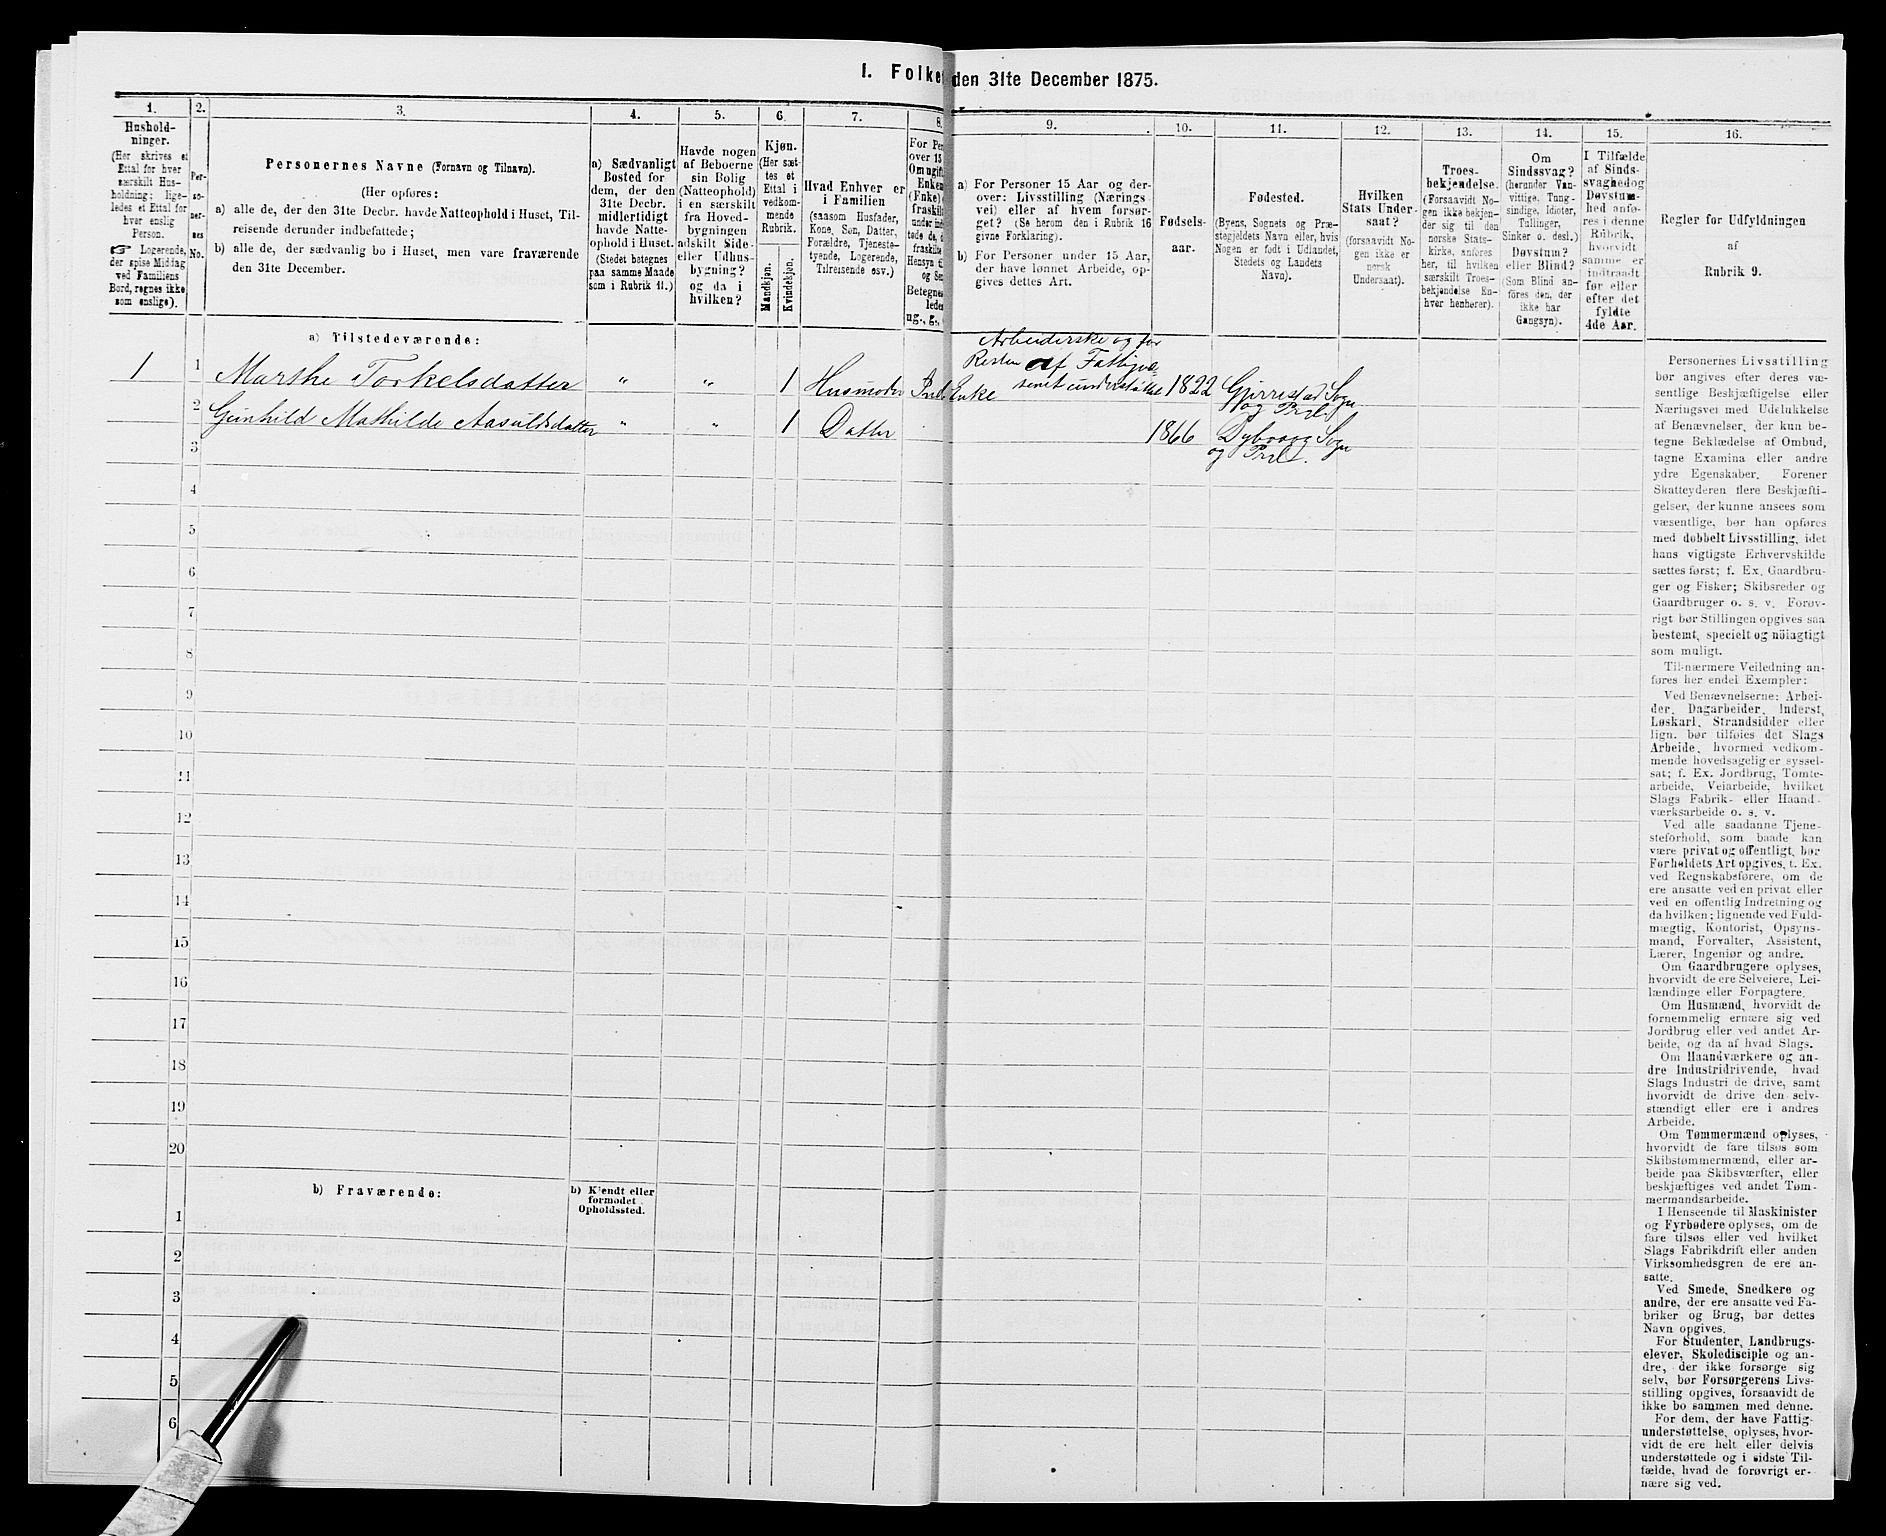 I. Folke
den 31te December 1875.
1.
Hushold-
ninger.
(Her skrives et
Ettal for hver
særskilt Hus-
holdning; lige-
ledes et Ettal for
hver enslig
Person.
☞ Logerende,
der spise Middag
ved Familiens
Bord, regnes ikke
som enslige).
2.
Per-
so-
ner-
nes
No.
3.
Personernes Navne (Fornavn og Tilnavn).
(Her opføres:
a) alle de, der den 31te Decbr. havde Natteophold i Huset, Til-
reisende derunder indbefattede;
b) alle de, der sædvanlig bo i Huset, men vare fraværende
den 31te December.
4.
a) Sædvanligt
Bosted for
dem, der den
31te Decbr.
midlertidigt
havde Natte-
ophold i Huset.
(Stedet betegnes
paa samme Maade
som i Rubrik 11.)
5.
Havde nogen
af Beboerne
sin Bolig
(Natteophold)
i en særskilt
fra Hoved-
bygningen
adskilt Side-
eller Udhus-
bygning?
og da i
hvilken?
6.
Kjøn.
(Her sæt-
tes et
Ettal i
vedkom-
mende
Rubrik.
Mandkjøn.
Kvindekjøn.
7.
Hvad Enhver er
i Familien
(saasom Husfader,
Kone, Søn, Datter,
Forældre, Tjeneste-
tyende, Logerende,
Tilreisende osv.)
8.
For Per
over 15
Om ugift
Enken
(Enke)
fraskilt
under
tede de,
fraskilte
Hensyn til
og Sen
Betegnes
ledes
ug., g.,
9.
a) For Personer 15 Aar og der-
over: Livsstilling (Nærings-
vei) eller af hvem forsør-
get? (Se herom den i Rubrik 16
givne Forklaring).
b) For Personer under 15 Aar,
der have lønnet Arbeide, op-
gives dettes Art.
10.
Fødsels-
aar.
11.
Fødested.
(Byens, Sognets og Præ-
stegjeldets Navn eller, hvis
Nogen er født i Udlandet,
Stedets og Landets
Navn).
12.
Hvilken
Stats Under-
saat?
(forsaavidt No-
gen ikke er
norsk
Undersaat).
13.
Troes-
bekjendelse.
(Forsaavidt No-
gen ikke bekjen-
der sig til den
norske Stats-
kirke, anføres
her, til hvilken
særskilt Troes-
bekjendelse En-
hver henhører).
14.
Om
Sindssvag?
(herunder Van-
vittige, Tung-
sindige, Idioter,
Tullinger,
Sinker o. desl.)
Døvstum?
eller Blind?
(Som Blind an-
føres den, der
ikke har
Gangsyn).
15.
I Tilfælde
af Sinds-
svaghed og
Døvstum-
hed anfø-
res i denne
Rubrik,
hvorvidt
samme er
indtraadt
før eller
efter det
fyldte
4de Aar.
16.
Regler for Udfyldningen
af
Rubrik 9.
a) Tilstedeværende:
1
1 Marthe Torkelsdatter " " 1 Husmoder Enke
Arbeiderske og for
Resten af Fattigvæ-
senet understøttet
1822 Gjerrestad Sogn
og Prgl.
2 Gunhild Mathilde Aasuldsdatter " " 1 Datter 1866 Dybvaag Sogn
og Prgl.
3
4
5
6
7
8
9
10
11
12
13
14
15
16
17
18
19
20
b) Fraværende:
b) Kjendt eller
formodet
Opholdssted.
1
2
3
4
5
6
Personernes Livsstilling
bør angives efter deres væ-
sentlige Beskjæftigelse eller
Næringsvei med Udelukkelse
af Benævnelser, der kun be-
tegne Beklædelse af Ombud,
tagne Examina eller andre
ydre Egenskaber. Forener
Skatteyderen flere Beskjæfti-
gelser, der kunne ansees som
væsentlige, bør han opføres
med dobbelt Livsstilling, idet
hans vigtigste Erhvervskilde
sættes først; f. Ex. Gaardbru-
ger og Fisker; Skibsreder og
Gaardbruger o. s. v. Forøv-
rigt bør Stillingen opgives saa
bestemt, specielt og nöiagtigt
som muligt.
Til nærmere Veiledning an-
føres her endel Exempler:
Ved Benævnelserne: Arbei-
der, Dagarbeider, Inderst,
Løskarl, Strandsidder eller
lign. bør tilføies det Slags
Arbeide, hvormed vedkom-
mende hovedsagelig er syssel-
sat; f. Ex. Jordbrug, Tomte-
arbeide, Veiarbeide, hvilket
Slags Fabrik- eller Haand-
værksarbeide o. s. v.
Ved alle saadanne Tjene-
steforhold, som baade kan
være privat og offentligt, bør
Forholdets Art opgives, f. Ex.
ved Regnskabsførere, om de
ere ansatte ved en privat eller
ved en offentlig Indretning og
da hvilken; lignende ved Fuld-
mægtig, Kontorist, Opsyns-
mand, Forvalter, Assistent,
Lærer, Ingeniør og andre.
Om Gaardbrugere oplyses,
hvorvidt de ere Selveiere, Lei-
lændinge eller Forpagtere.
Om Husmænd, hvorvidt de
fornemmelig ernære sig ved
Jordbrug eller ved andet Ar-
beide, og da af hvad Slags.
Om Haandværkere og an-
dre Industridrivende, hvad
Slags Industri de drive, samt
hvorvidt de drive den selv-
stændigt eller ere i andres
Arbeide.
Om Tømmermænd oplyses,
hvorvidt de fare tilsøs som
Skibstømmermænd, eller ar-
beide paa Skibsværfter, eller
beskjæftiges ved andet Tøm-
mermandsarbeide.
I Henseende til Maskinister
og Fyrbødere oplyses, om de
fare tilsøs eller ved hvilket
Slags Fabrikdrift eller anden
Virksomhedsgren de ere an-
satte.
Ved Smede, Snedkere og
andre, der ere ansatte ved Fa-
briker og Brug, bør dettes
Navn opgives.
For Studenter, Landbrugs-
elever, Skoledisciple og an-
dre, der ikke forsørge sig
selv, bør Forsørgerens Livs-
stilling opgives, forsaavidt de
ikke bo sammen med denne.
For dem, der have Fattig-
understøttelse, oplyses, hvor-
vidt de ere helt eller delvis
understøttede og i sidste Til-
fælde, hvad de forøvrigt er-
nære sig ved.